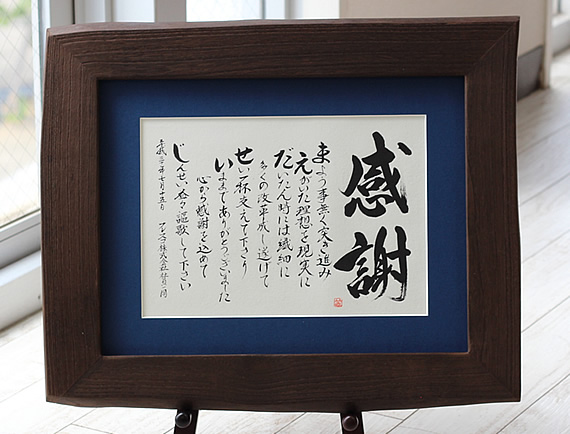 感謝
まよう事無く突き進み
えがいた理想を現実に
だいたん時には繊細に
多くの改革成し遂げて
せい一杯支えて下さり
いままでありがとうございました
心から感謝を込めて
じんせい益々謳歌して下さい
年七月十五日
株式会社社員一同